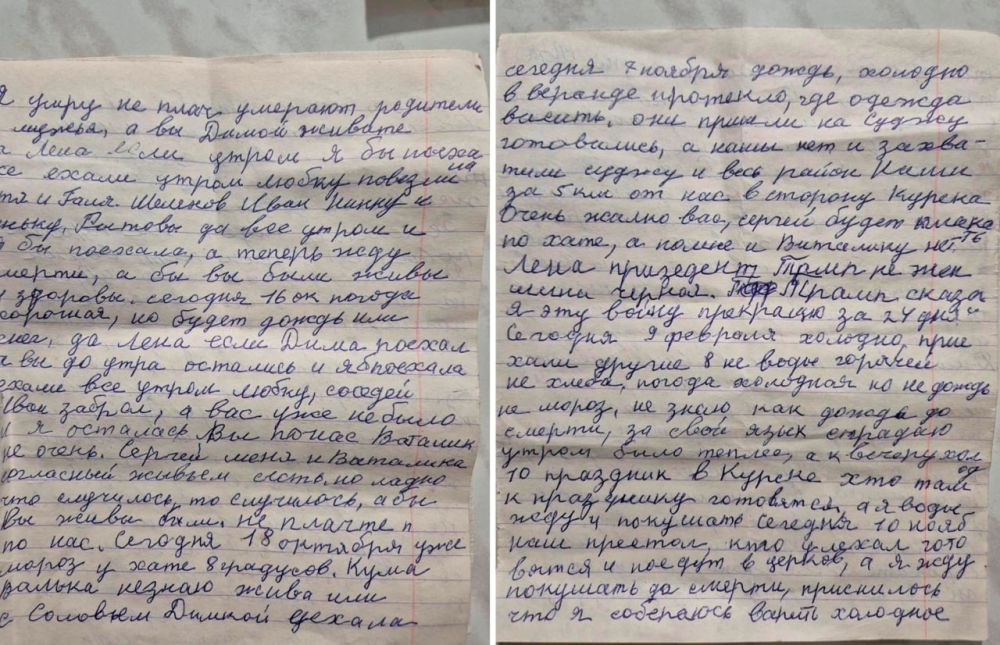 я умру не плач умерают родители
мужья, а вы Димой живите
а Лена если утром я бы поеха
ла
се ехали утром любку повезли
тя и Галя. Шеленов Иван Нинку и
ньку, Рытовы да все утром и
я бы поехала, а теперь жду
мерти, а бы вы были живы
и здоровы. сегодня 16 ок погода
хорошая, но будет дождь или
снег, да Лена если Дима поехал
а вы до утра остались и я б поехала
ехали все утром любку, соседей
Иван забрал, а вас уже небыло
и я осталась Вы по нас Ваталик
не очень. Сергей меня и Ваталика
огласный живьем съесть, но ладно
что случилось, то случилось, абы
Вы живы были. не плачте п
по нас. Сегодня 18 октября уже
мороз у хате 8 градусов. Кума
Валька незнаю жива или
с Соловьем Димкой уехала
сегодня 7 ноября дождь, холодно
в веранде протекло, где одежда
висить. они пришли на Суджу
готовились, а наши нет и захва-
тили суджу и весь район Наши
за 5 км от нас в сторону Курска
Очень жалко вас, сергей будет плака
ть
по хате, а помне и Виталику нет.
Лена призедент Трамп не жен
шина черная. Трамп сказа
Я эту войну прекращу за 24 дня"
Сегодня 9 февраля холодно, прие
хали другие 8 не воды горячей
не хлеба, погода холодная но не дождь
не мороз, не знаю как дождя до
смерти, за свой язык страдаю
утром было теплее, а к вечеру хол
од
10 праздник в Курске хто там
к празднику готовятся, а я воды
жду и покушать Сегодня 10 нояб
наш престол, кто уехал гото
вытся и поедут в церков, а я жду
покушать до смерти, приснилось
что я собераюсь варить холодное